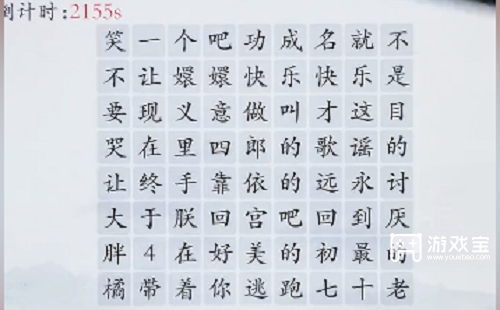 倒计时:2155s
笑一个吧功成名就不
不让嬛嬛快乐快乐是
要现义意做叫才这目
哭在里四郎的歌谣的
让终手靠依的远永讨
大于朕回宫吧回到厌
胖4在好美的初最的
橘带着你逃跑七十老
游戏宝
www.youxibao.com